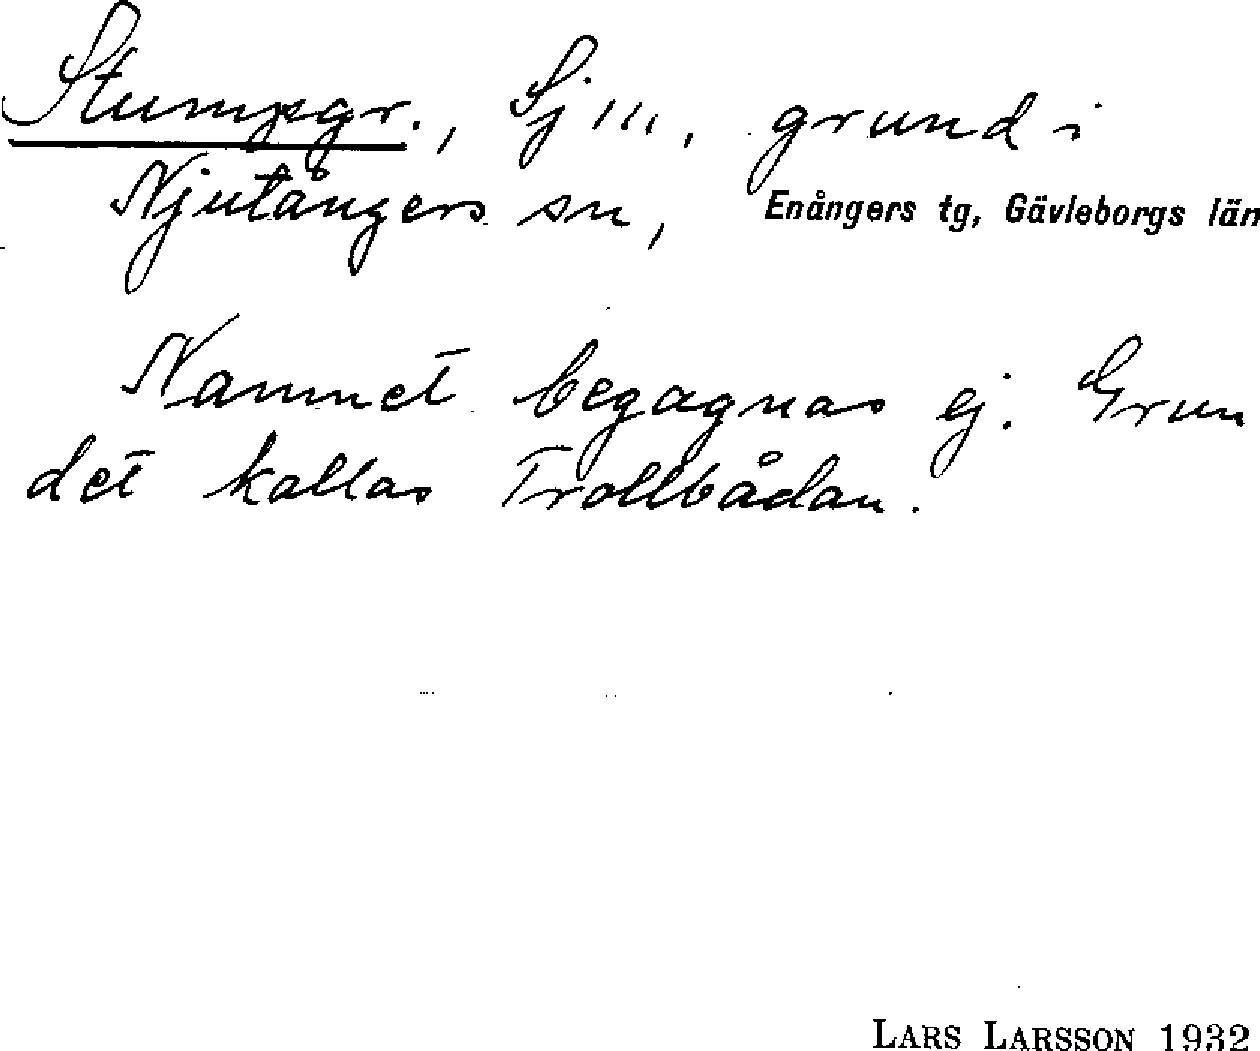 Stumpgr., Sj 111, grund i
Njutångers sn, Enångers tg, Gävleborgs län
Namnet begagnas ej. Grun
det kallas Trollbådan.
LARS LARSSON 1932